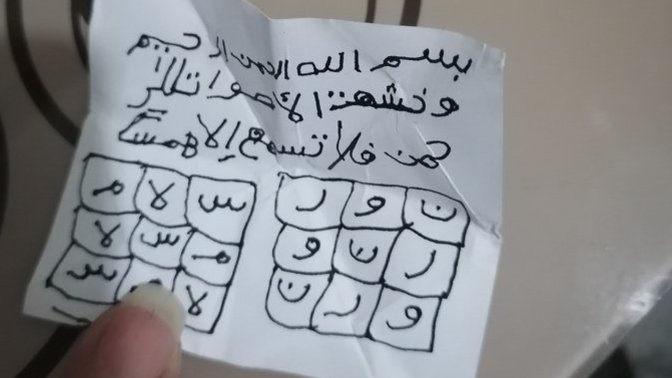 بسم الله الرحمن الرحيم
وخشعت الأصوات للر
حمن فلا تسمع إلا همساً
ن و ر
ر ن و
و ر ن
س لا م
م س لا
لا م س